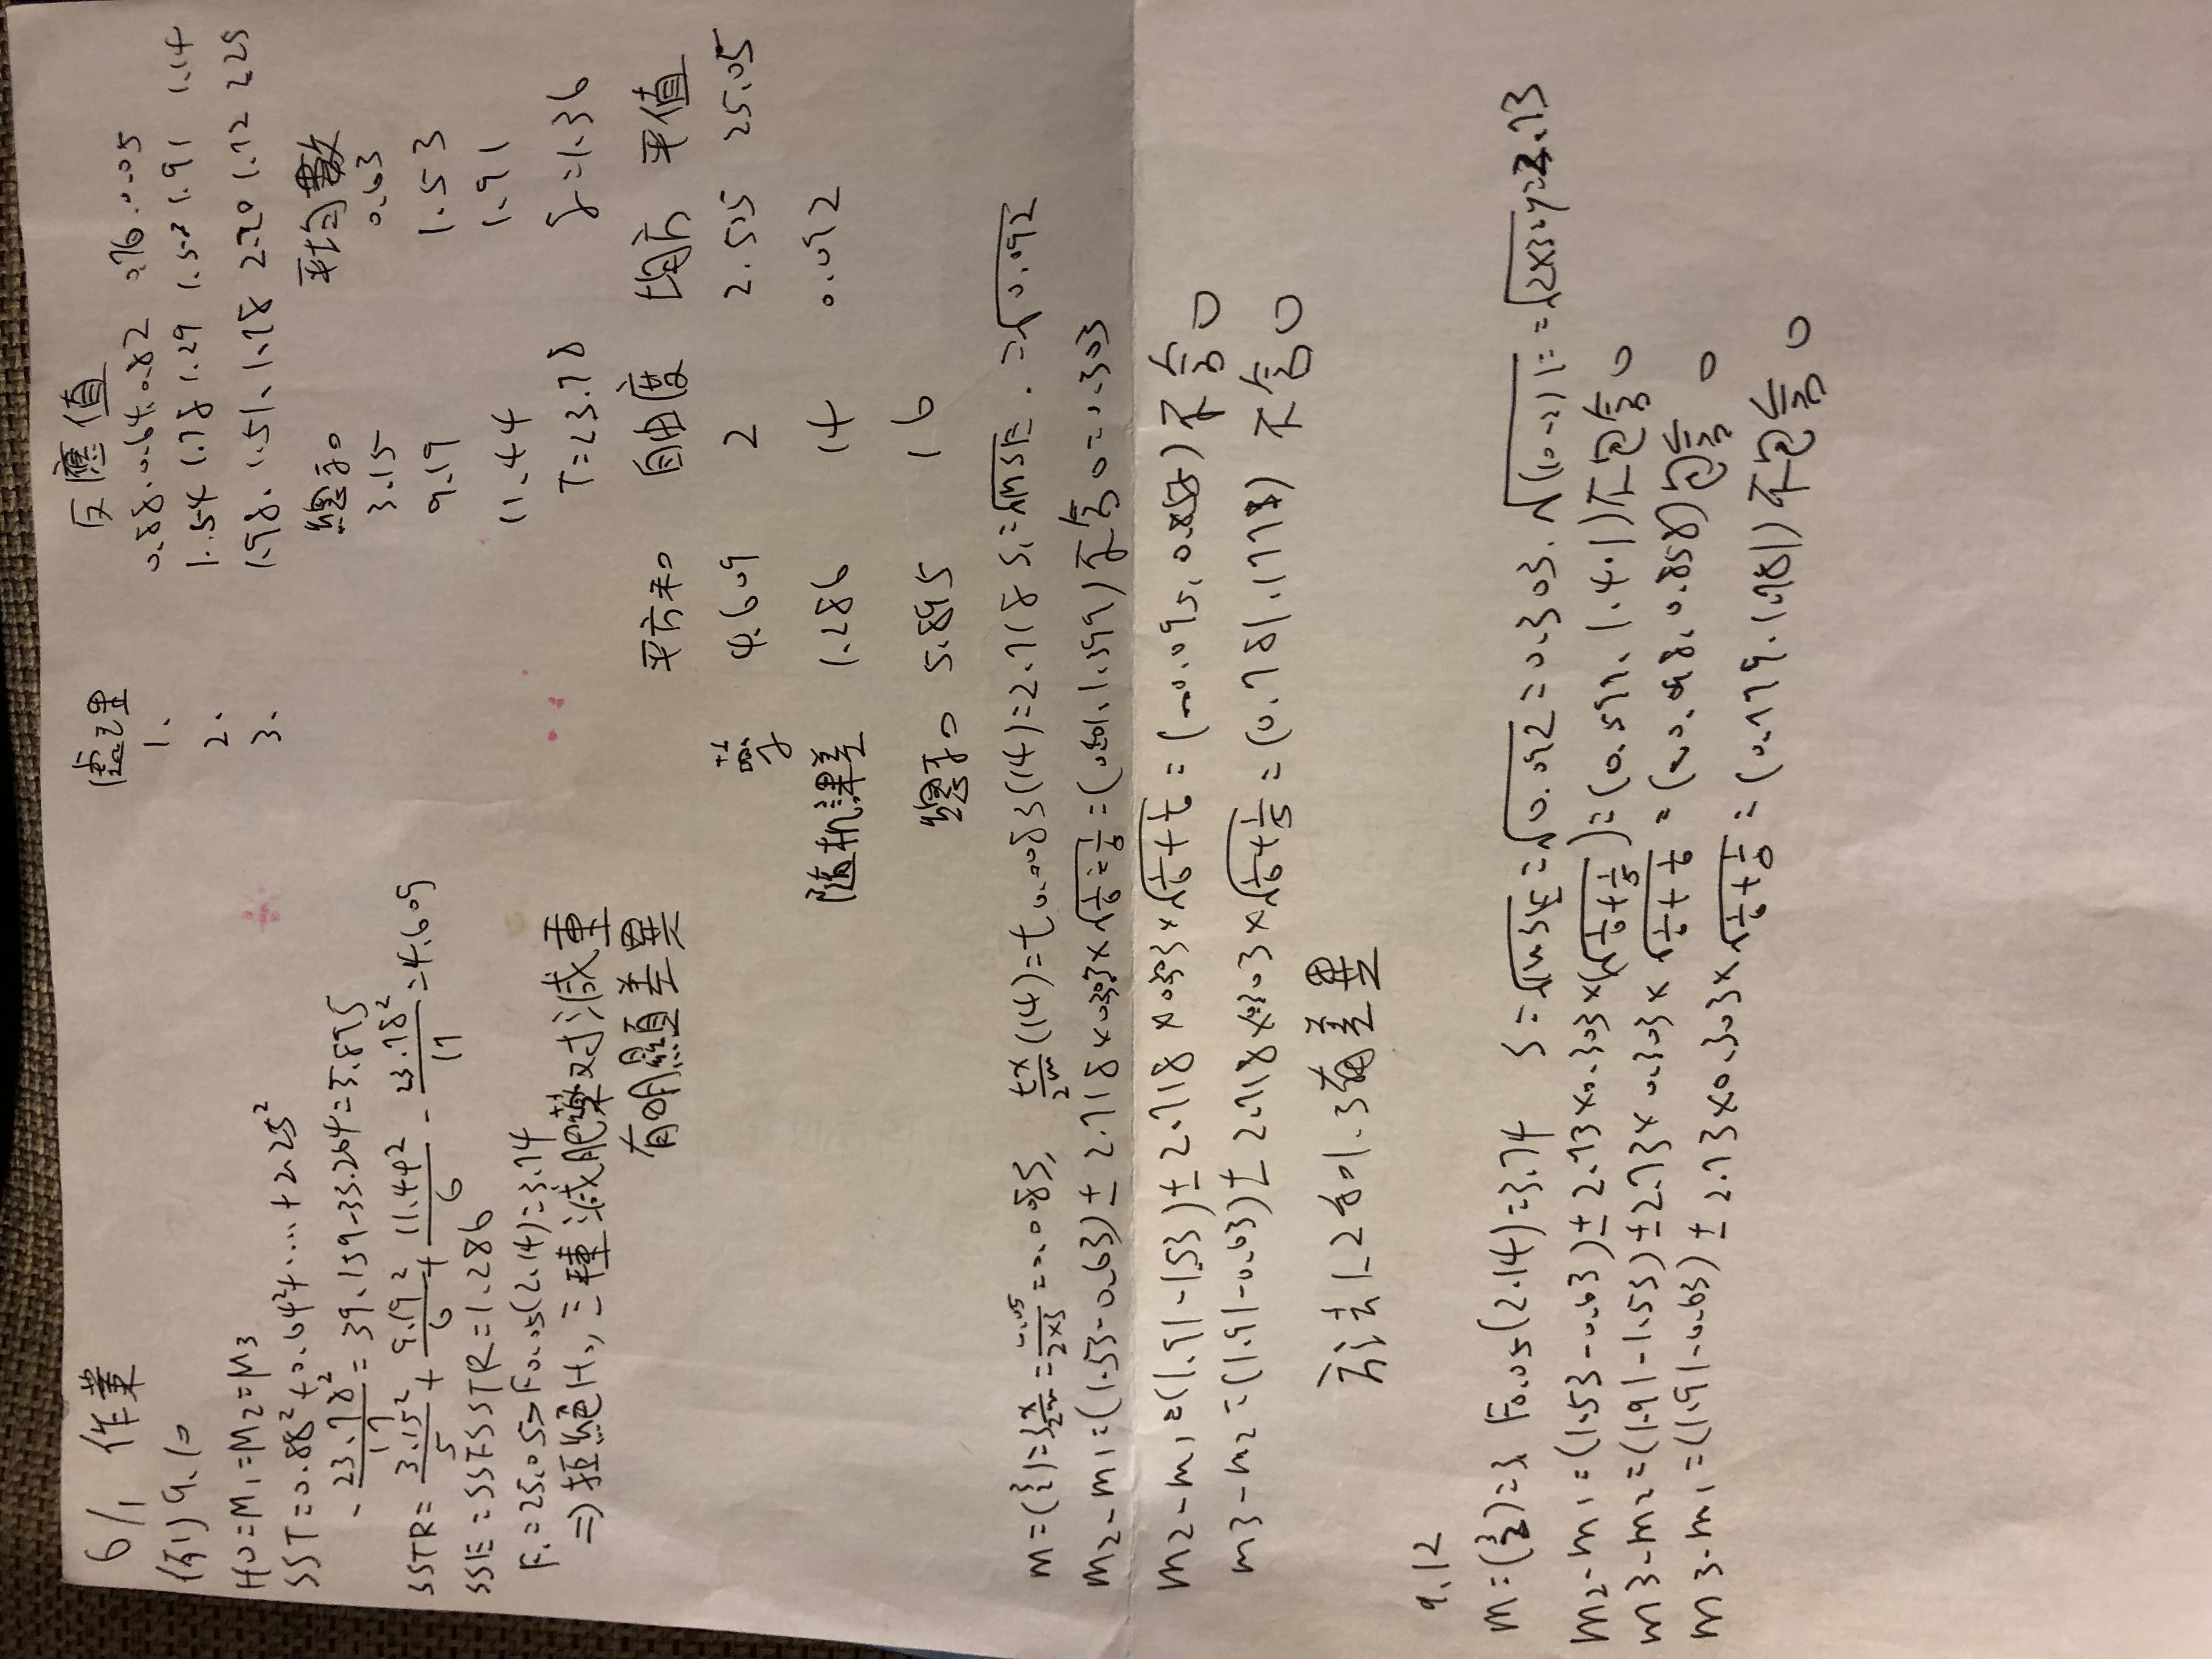 6/1 作業
例1) 9.10
H0=M1=M2=M3
SST=0.88²+0.64²+....+2.25²
- 23.78²/17 = 39.159-33.264=5.895
SSTR= 3.15²/5 + 9.19²/6 + 11.44²/6 - 23.78²/17 =4.609
SSE=SST-SSTR=1.286
F.=25.05>F0.05(2.14)=3.74
⇒拒絕H., 三種減肥藥对減重
有明顯差異
處理 反應值
1. 0.88.0.64.0.82 0.76.0.05
2. 1.54 1.78 1.29 1.53 1.91 1.14
3. 1.98.1.51.1.78 2.20 1.72 2.25
總和 平均數
3.15 0.63
9.19 1.53
11.44 1.91
T=23.78 =1.36
平方和 自由度 均方 平值
4.609 2 2.505 25.05
隨机誤差 1.286 14 0.092
總和 5.895 16
m=(3/2)=3 x/2m = 0.05/2×3 =0.0083, tx/2m (14)=t0.0083(14)=2.718 S.=√MSE. =√0.092
m2-m1=(1.53-0.63)±2.718×0.303×√1/6+1/5=(0.501.1.399)不含0=0.303
m2-m1=(1.91-1.53)±2.718×0.303×√1/6+1/6=(-0.095,0.855)不含0
m3-m2=(1.91-0.63)±2.718×0.303×√1/6+1/5=(0.781.1778) 不含0
方法1.2和1.3有差異
9.12
m=(3/2)=3. F0.05(2.14)=3.74 S=√MSE=√0.092=0.303. =√2×3.74=2.73
m2-m1=(1.53-0.63)±2.73×0.303×(√1/6+1/5)=(0.599.1.401)不包含0
m3-m2=(1.91-1.53)±2.73×0.303×√1/6+1/6=(-0.098,0.858)包含0
m3-m1=(1.91-0.63)±2.73×0.303×√1/6+1/5=(0.779.1.781)不包含0